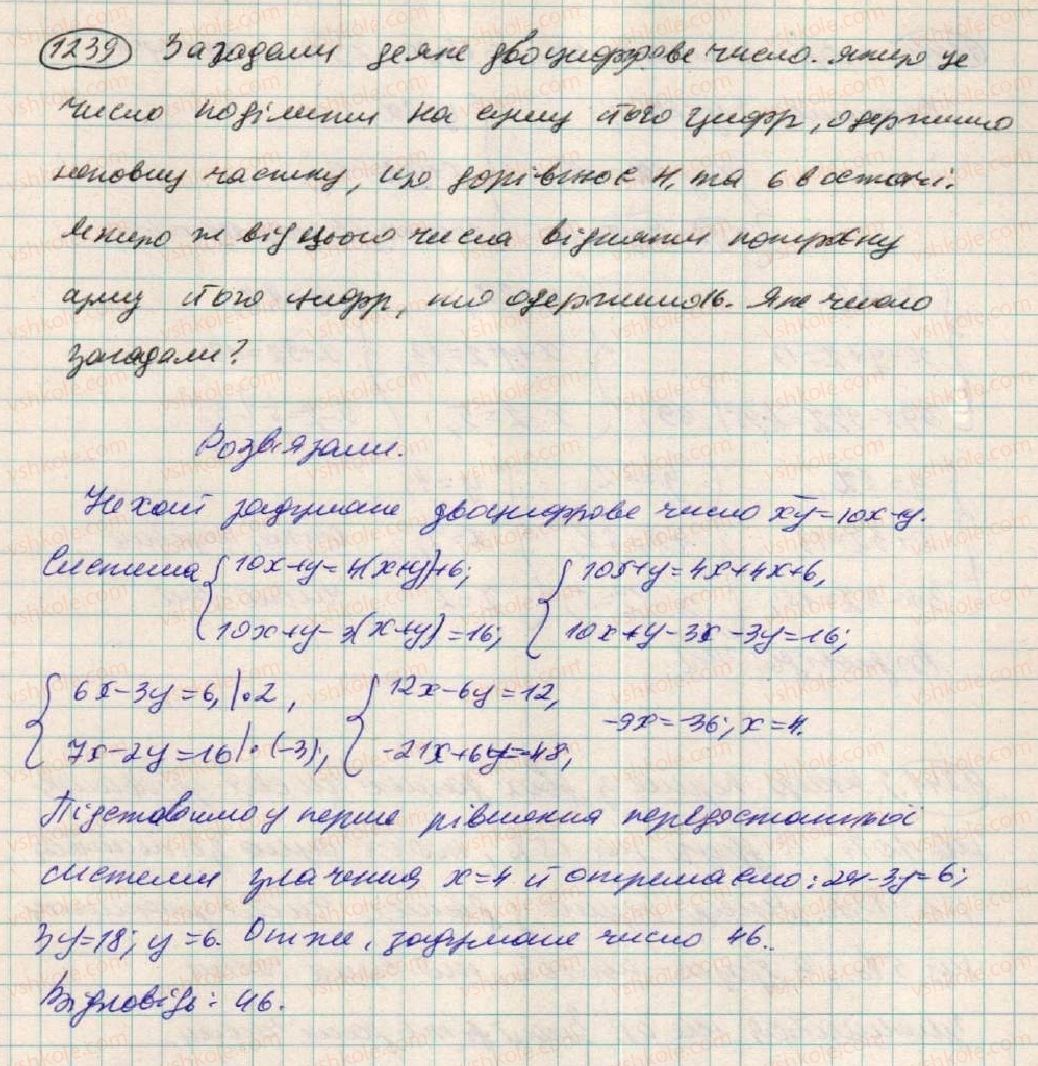 1239 Загадали деяке двоцифрове число. Якщо це
число поділити на суму його цифр, одержимо
неповну частку, що дорівнює 4, та 6 в остачі.
Якщо ж від цього числа відняти потрійну
суму його цифр, то одержимо 16. Яке число
загадали?
Розв'язали.
Нехай задумане двоцифрове число xy = 10x+y.
Система { 10x+y=4(x+y)+6; { 10x+y=4x+4x+6,
10x+y-3(x+y)=16; 10x+y-3x-3y=16;
{ 6x-3y=6,|•2, { 12x-6y=12,
7x-2y=16|•(-3); -21x+6y=-48, -9x=-36; x=4.
Підставимо у перше рівняння передостанньої
системи значення x=4 й отримаємо: 24-3y=6;
3y=18; y=6. Отже, задумане число 46.
Відповідь: 46.